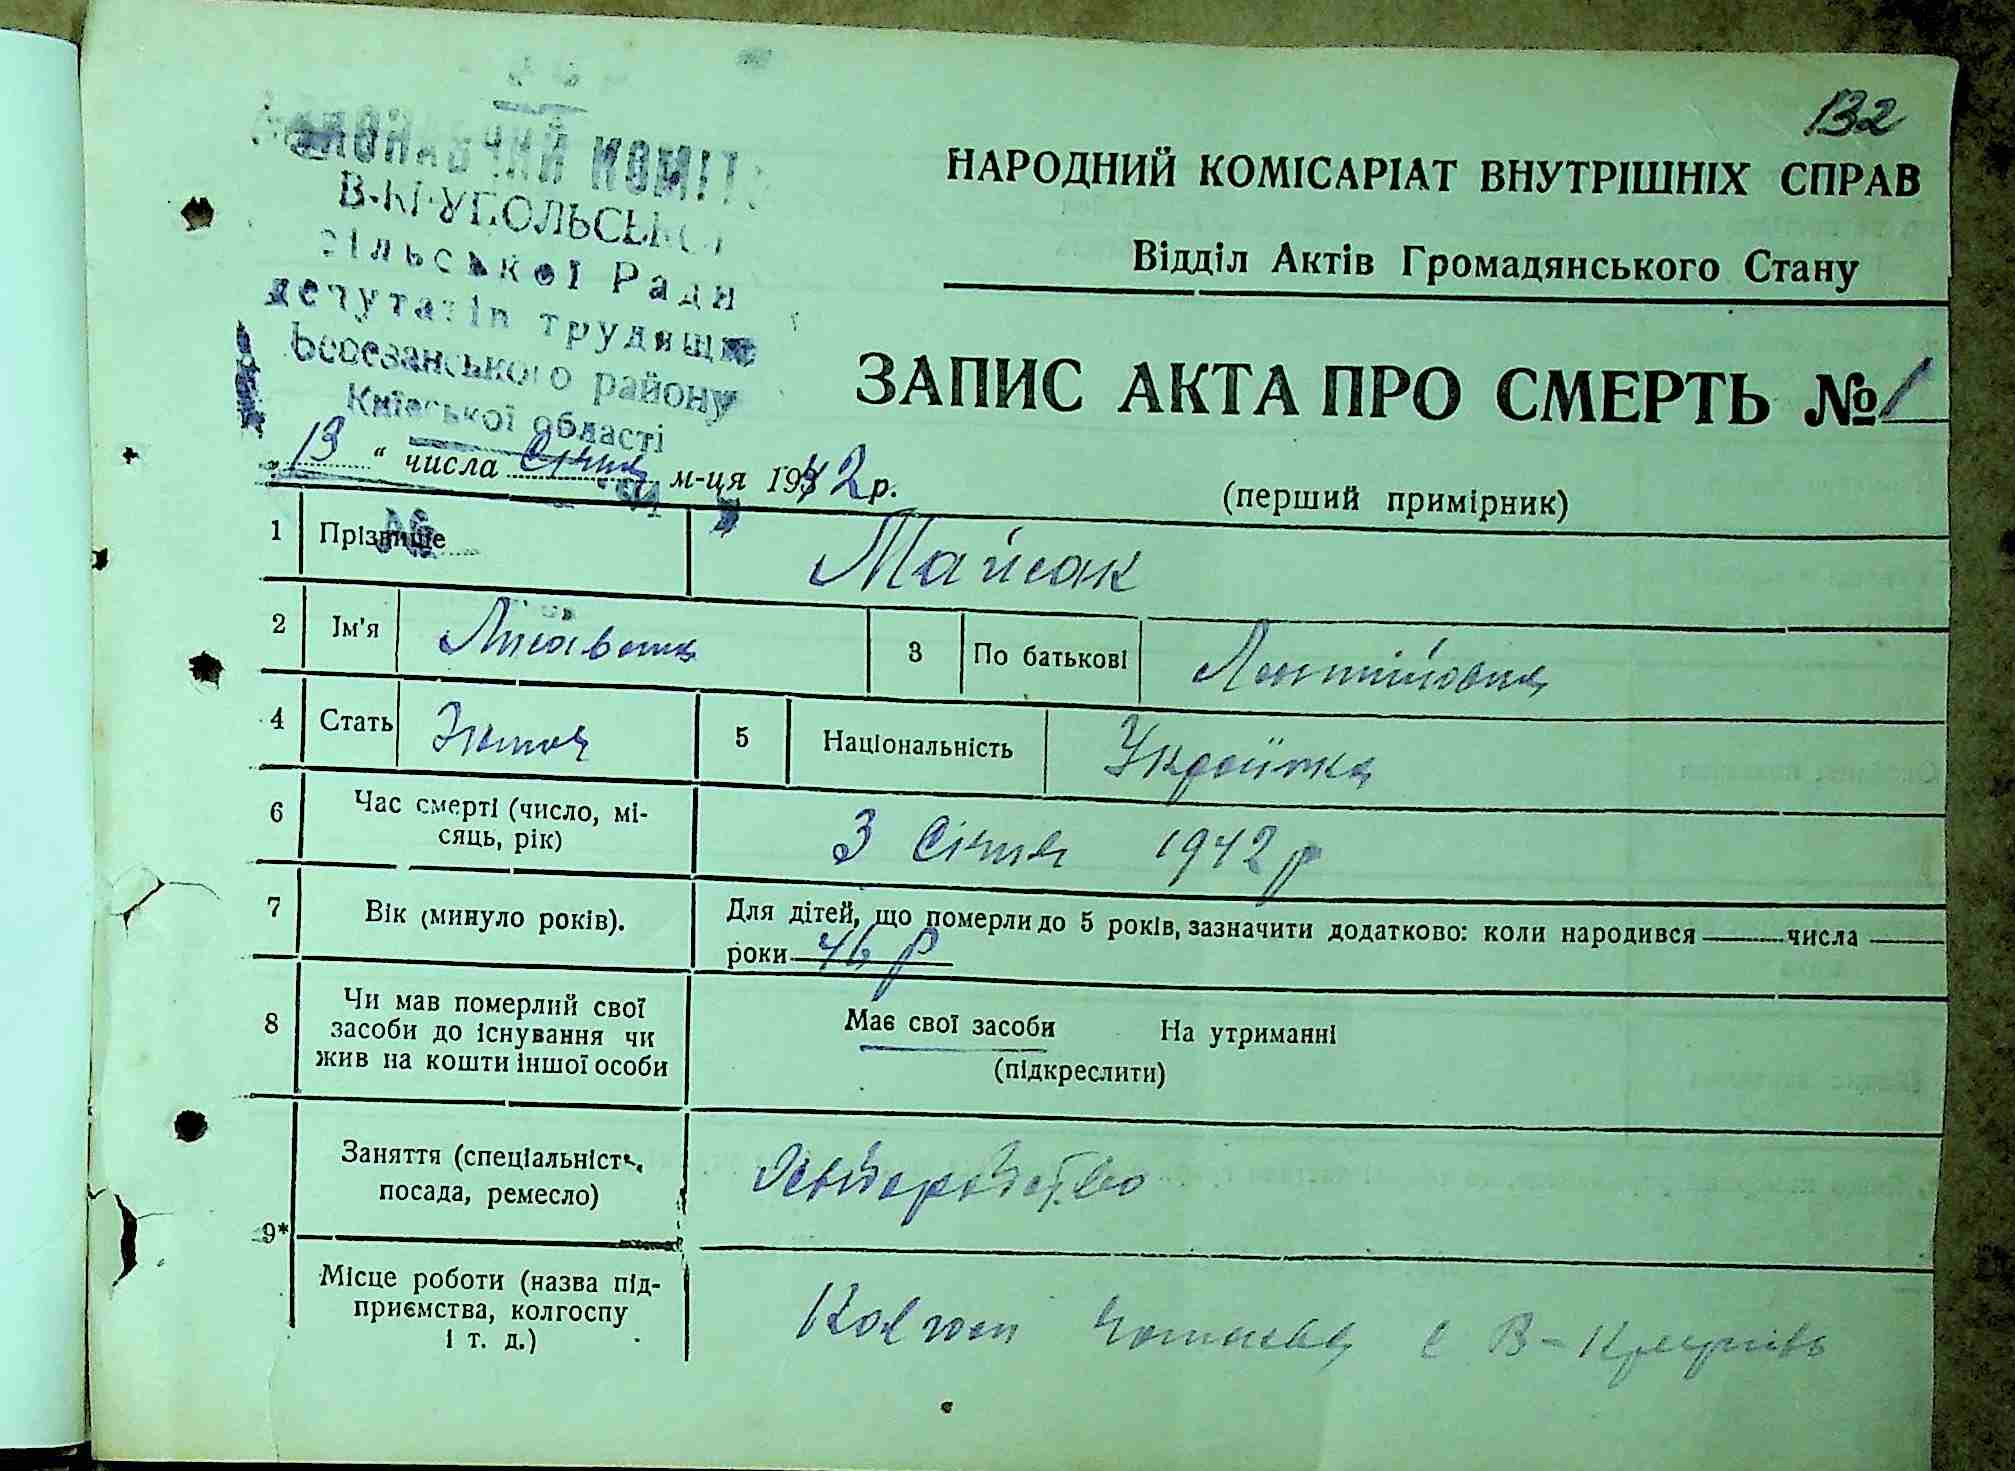 132
НАРОДНИЙ КОМІСАРІАТ ВНУТРІШНІХ СПРАВ
Відділ Актів Громадянського Стану
В-КРУПОЛЬСЬКОЇ
сільської Ради
депутатів трудящих
Березанського району
Київської області
ЗАПИС АКТА ПРО СМЕРТЬ № 1
„ 13 “ числа січня м-ця 1942 р.
(перший примірник)
1 Прізвище Майсак
2 Ім'я 3 По батькові
4 Стать 5 Національність Українка
6 Час смерті (число, мі-
сяць, рік) 3 Січня 1942 р
7 Вік (минуло років). Для дітей, що померли до 5 років, зазначити додатково: коли народився числа
роки 46 р
8 Чи мав померлий свої
засоби до існування чи
жив на кошти іншої особи
Має свої засоби На утриманні
(підкреслити)
9* Заняття (спеціальність,
посада, ремесло)
Місце роботи (назва під-
приємства, колгоспу
і т. д.)
Колгосп Чапаєва с В-Крупіль